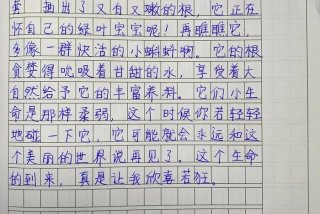 苔抽出了又白又嫩的根，它正在
怀自己的绿叶宝宝呢！再瞧瞧它，
多像一群快活的小蝌蚪啊。它的根
贪婪得吮吸着甘甜的水，享受着大
自然给予它的丰富养料。它们小生
命是那样柔弱，这个时候你若轻轻
地碰一下它，它可能就会永远和这
个美丽的世界说再见了。这个生命
的到来，真是让我欣喜若狂。